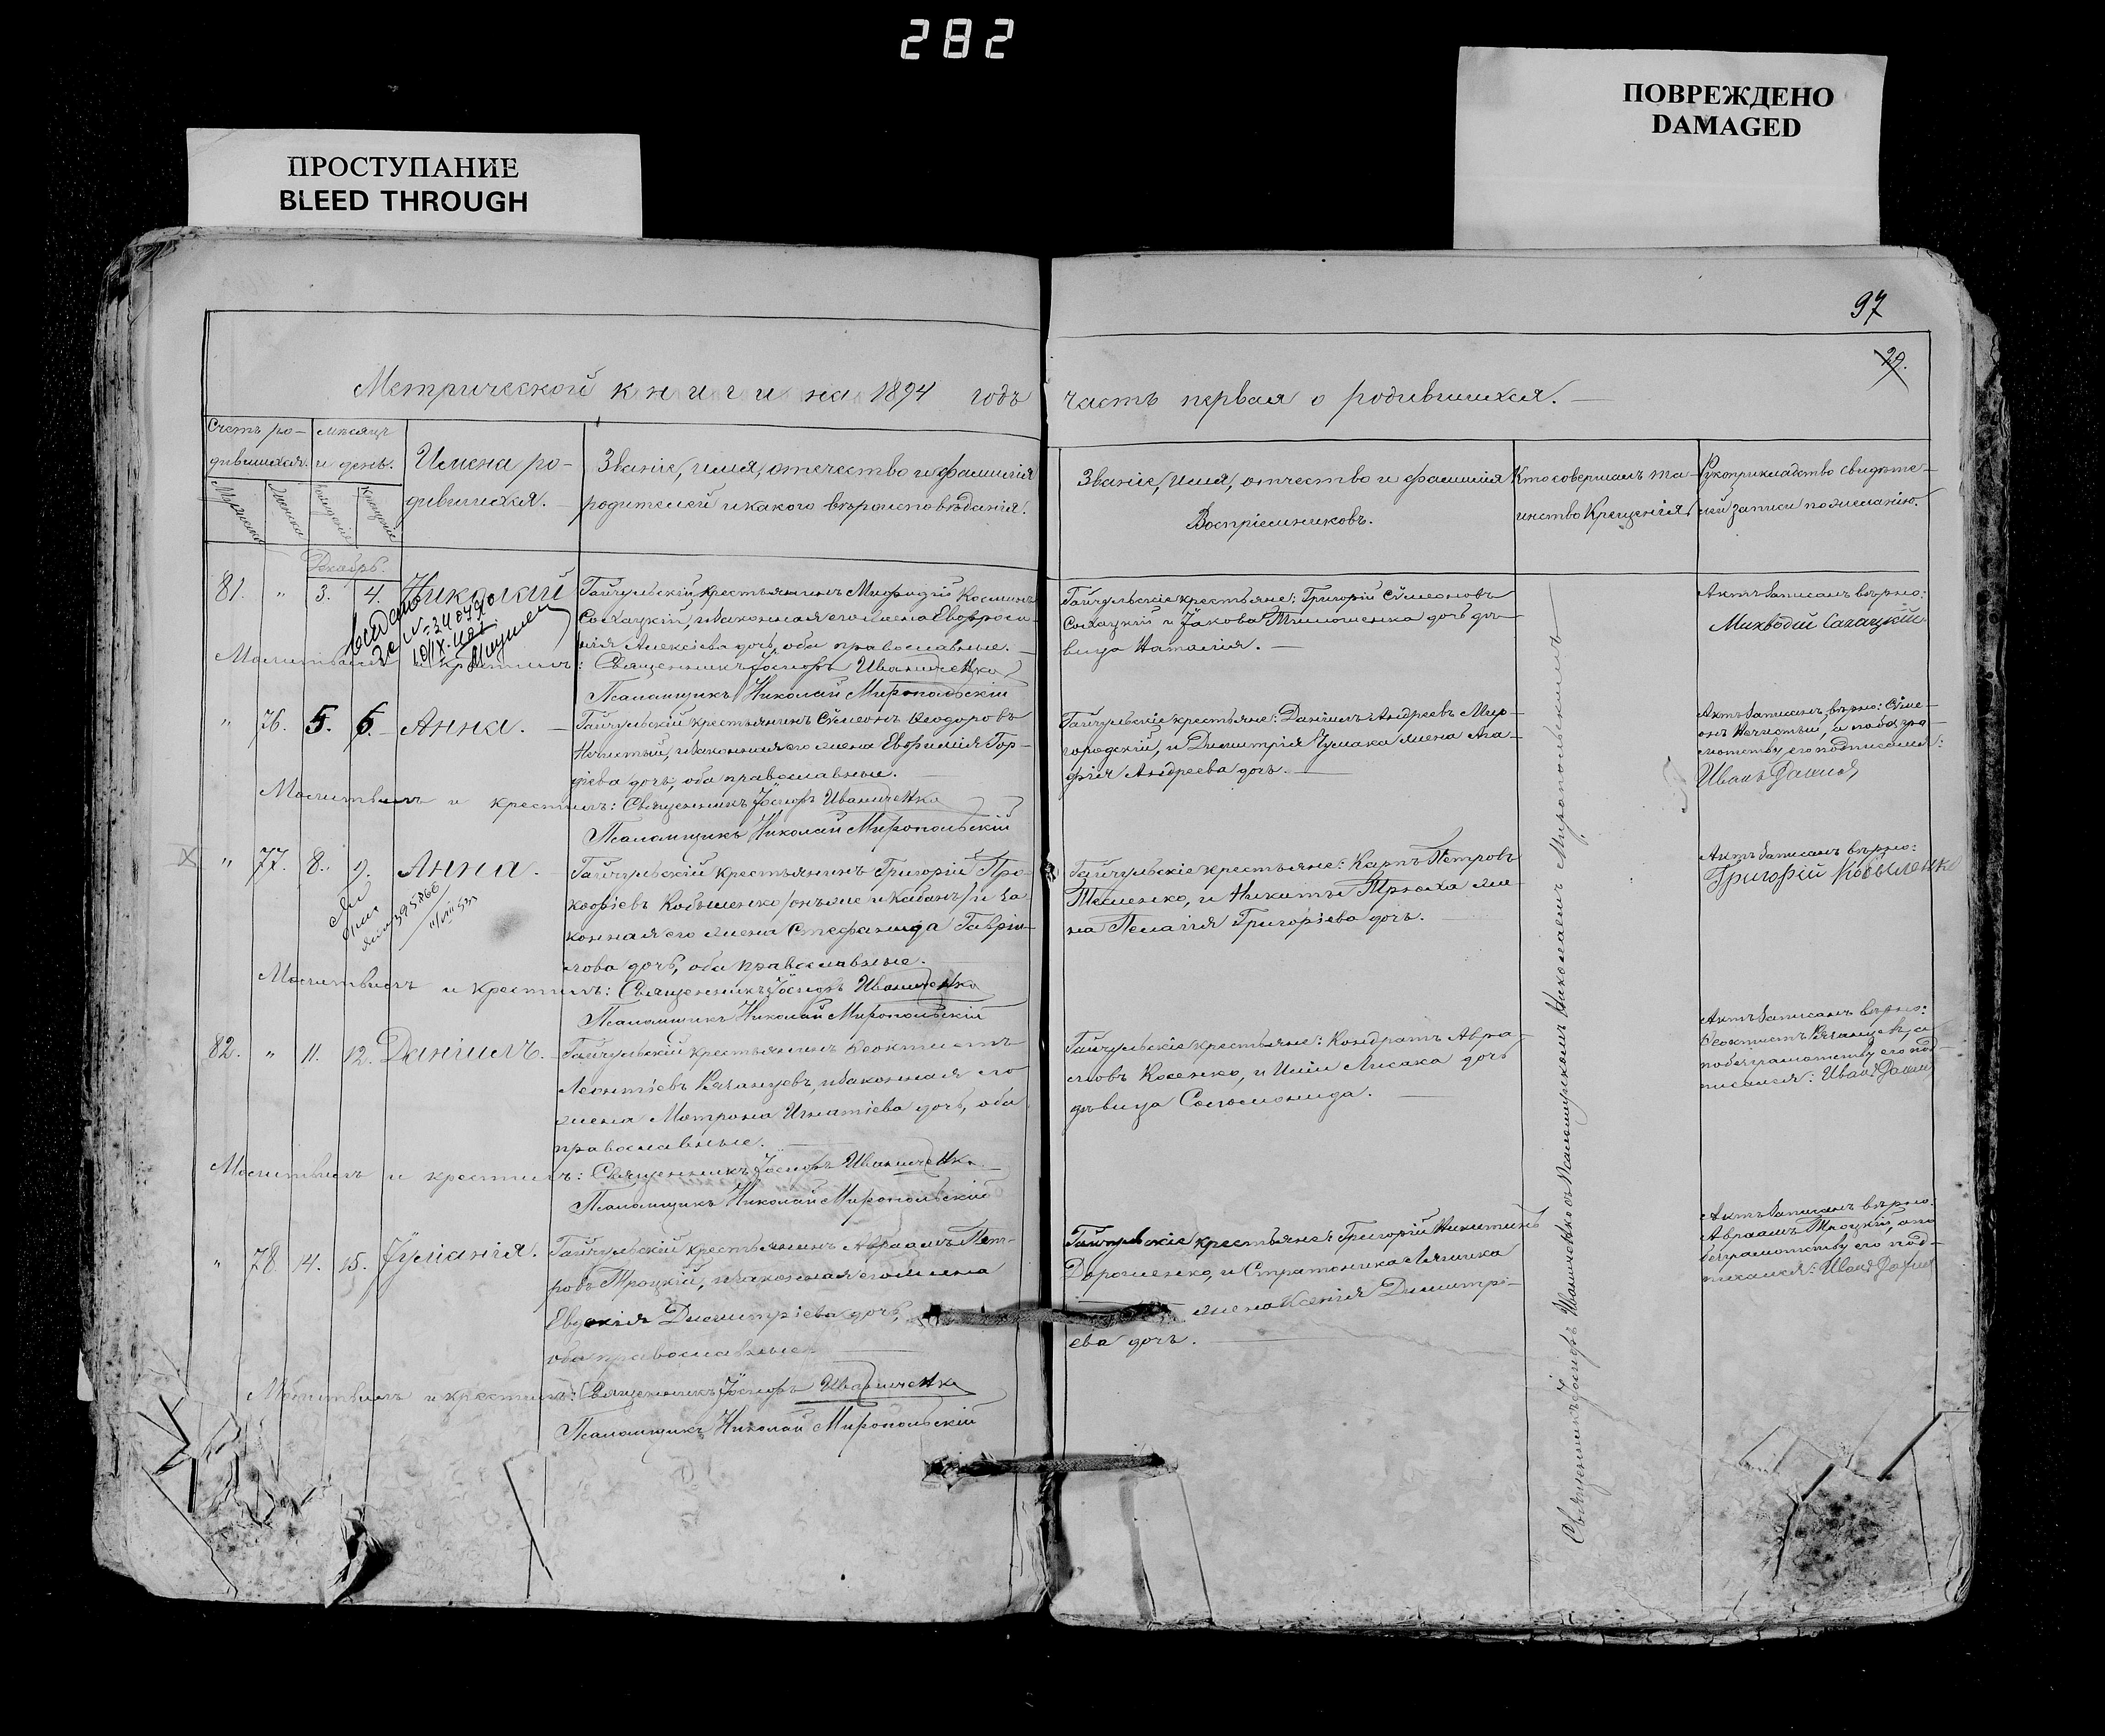 282
ПОВРЕЖДЕНО
DAMAGED
ПРОСТУПАНИЕ
BLEED THROUGH
97
29.
Метрической книги на 1894 годъ
часть первая о родившихся.
Счетъ ро-
дившихся.
Мужеска
Женска
Мѣсяцъ
и день.
рожденія
крещенія
Имена ро-
дившихся.
Званіе, имя, отечество и фамилія
родителей и какого вѣроисповѣданія.
Званіе, имя, отчество и фамилія
Воспріемниковъ.
Кто совершалъ та-
инство Крещенія
Рукоприкладство свидѣте-
лей записи по желанію.
Декабрь.
81. " 3. 4. Николай
Гайчульскій крестьянинъ Мефодій Косминъ
Сахацкій, и законная его жена Евфроси-
нія Алексіева дочь, оба православные.
Молитвилъ и крестилъ: Священникъ Іосифъ Иваниченко
Псаломщикъ Николай Миропольскій
Гайчульскіе крестьяне: Григорій Сѵмеоновъ
Сахацкій и Іакова Тимошенка дочь дѣ-
вица Наталія.
Актъ записанъ вѣрно:
Михводій Сахацкій
" 76. 5. 6. Анна.
Гайчульскій крестьянинъ Сѵмеонъ Ѳеодоровъ
Нечистый, и законная его жена Евфимія Гор-
діева дочь, оба православные.
Молитвилъ и крестилъ: Священникъ Іосифъ Иваниченко
Псаломщикъ Николай Миропольскій
Гайчульскіе крестьяне: Даніилъ Андреевъ Мир-
городскій, и Димитрія Чумака жена Ага-
фія Андреева дочь.
Актъ записанъ вѣрно: Сѵме-
онъ Нечистый, а по безгра-
мотству его подписался:
Иванъ
77. 8. 9. Анна.
Гайчульскій крестьянинъ Григорій Про-
кофіевъ Кобыленко /онъ же и Кабанъ/ и за
конная его жена Стефанида Гаврии-
лова дочь, оба православные.
Молитвилъ и крестилъ: Священникъ Іосифъ Иваниченко
Псаломщикъ Николай Миропольскій
Гайчульскіе крестьяне: Карпъ Петровъ
Тешенко, и Никиты Трюха же-
на Пелагія Григоріева дочь.
Актъ записанъ вѣрно:
Григорій Кобыленко
82. " 11. 12. Даніилъ.
Гайчульскій крестьянинъ Ѳеоктистъ
Леонтіевъ и законная его
жена Матрона Игнатіева дочь, оба
православные.
Молитвилъ и крестилъ: Священникъ Іосифъ Иваниченко
Псаломщикъ Николай Миропольскій
Гайчульскіе крестьяне: Кондратъ Авра-
амовъ Косенко, и Лисака дочь
дѣвица Соломонида.
Актъ записанъ вѣрно:
Ѳеоктистъ а
по безграмотству его под-
писался: Иванъ
" 78. 14. 15. Іуліанія.
Гайчульскій крестьянинъ Авраамъ Пет-
ровъ Троцкій, и законная его жена
Евдокія Димитріева дочь,
оба православные.
Молитвилъ и крестилъ: Священникъ Іосифъ Иваниченко
Псаломщикъ Николай Миропольскій
Гайчульскіе крестьяне: Григорій Никитинъ
Дорошенко, и Стратоника
жена Ксенія Димитрі-
ева дочь.
Актъ записанъ вѣрно:
Авраамъ Троцкій, а по
безграмотству его под-
писался: Иванъ
Священникъ Іосифъ Иваниченко съ Псаломщикомъ Николаемъ Миропольскимъ